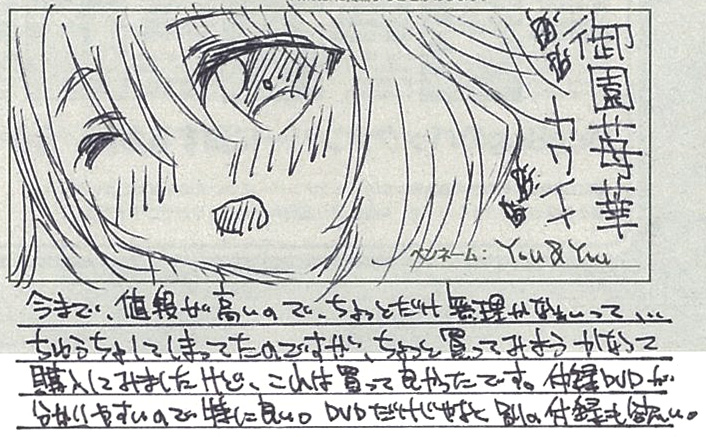 御園苺華
カワイイ
ペンネーム： You & You
今まで、値段が高いので、ちょっとだけ無理かなぁって、…
ちゅうちょしてしまってたのですが、ちょっと買ってみようかなって
購入してみましたけど、これは買って良かったです。付録DVDが
分かりやすいので特に良い。DVDだけじゃなく別の付録も欲しい。